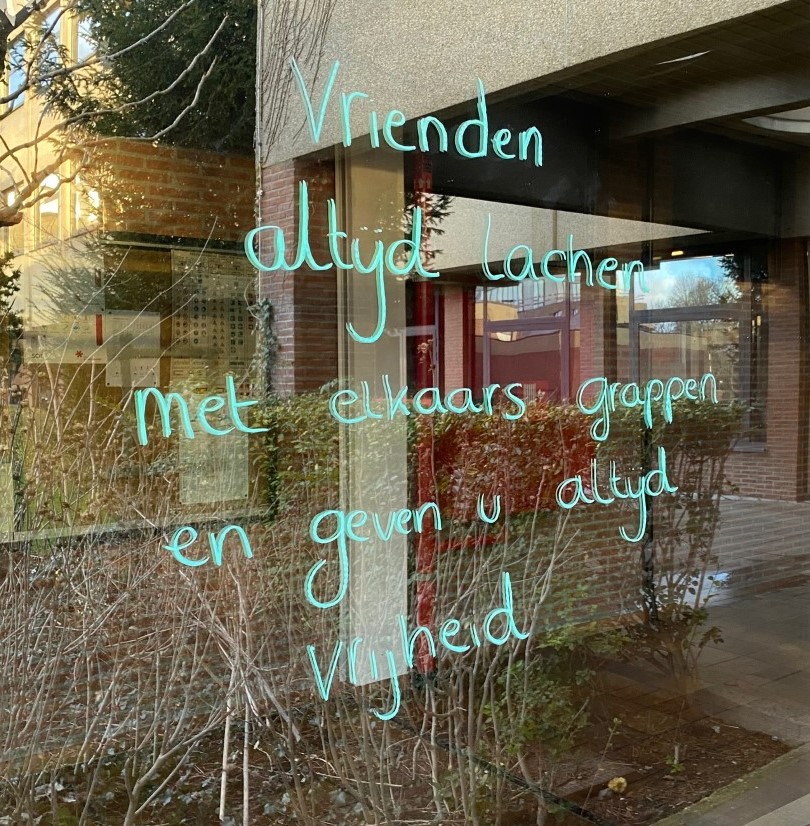 Vrienden
altijd lachen
met elkaars grappen
en geven u altijd
vrijheid